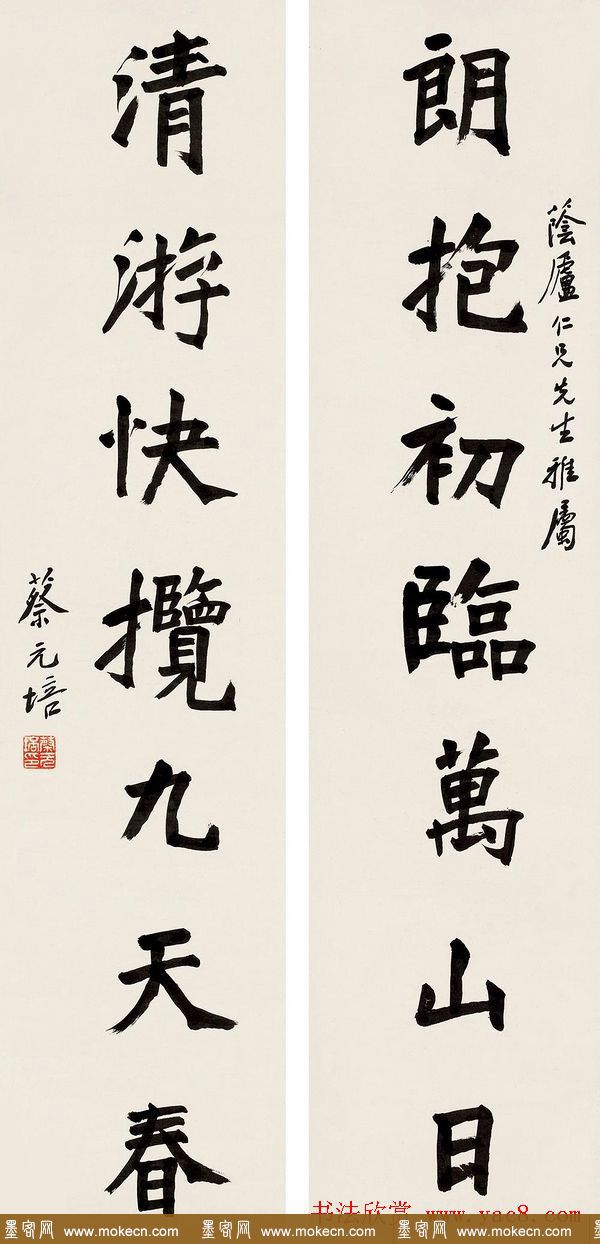 蔭廬仁兄先生雅屬
朗抱初臨萬山日
清游快攬九天春
蔡元培
蔡元培印
书法欣赏 www.yac8.com
墨客网 www.mokecn.com 墨客网 www.mokecn.com 墨客网 www.mokecn.com